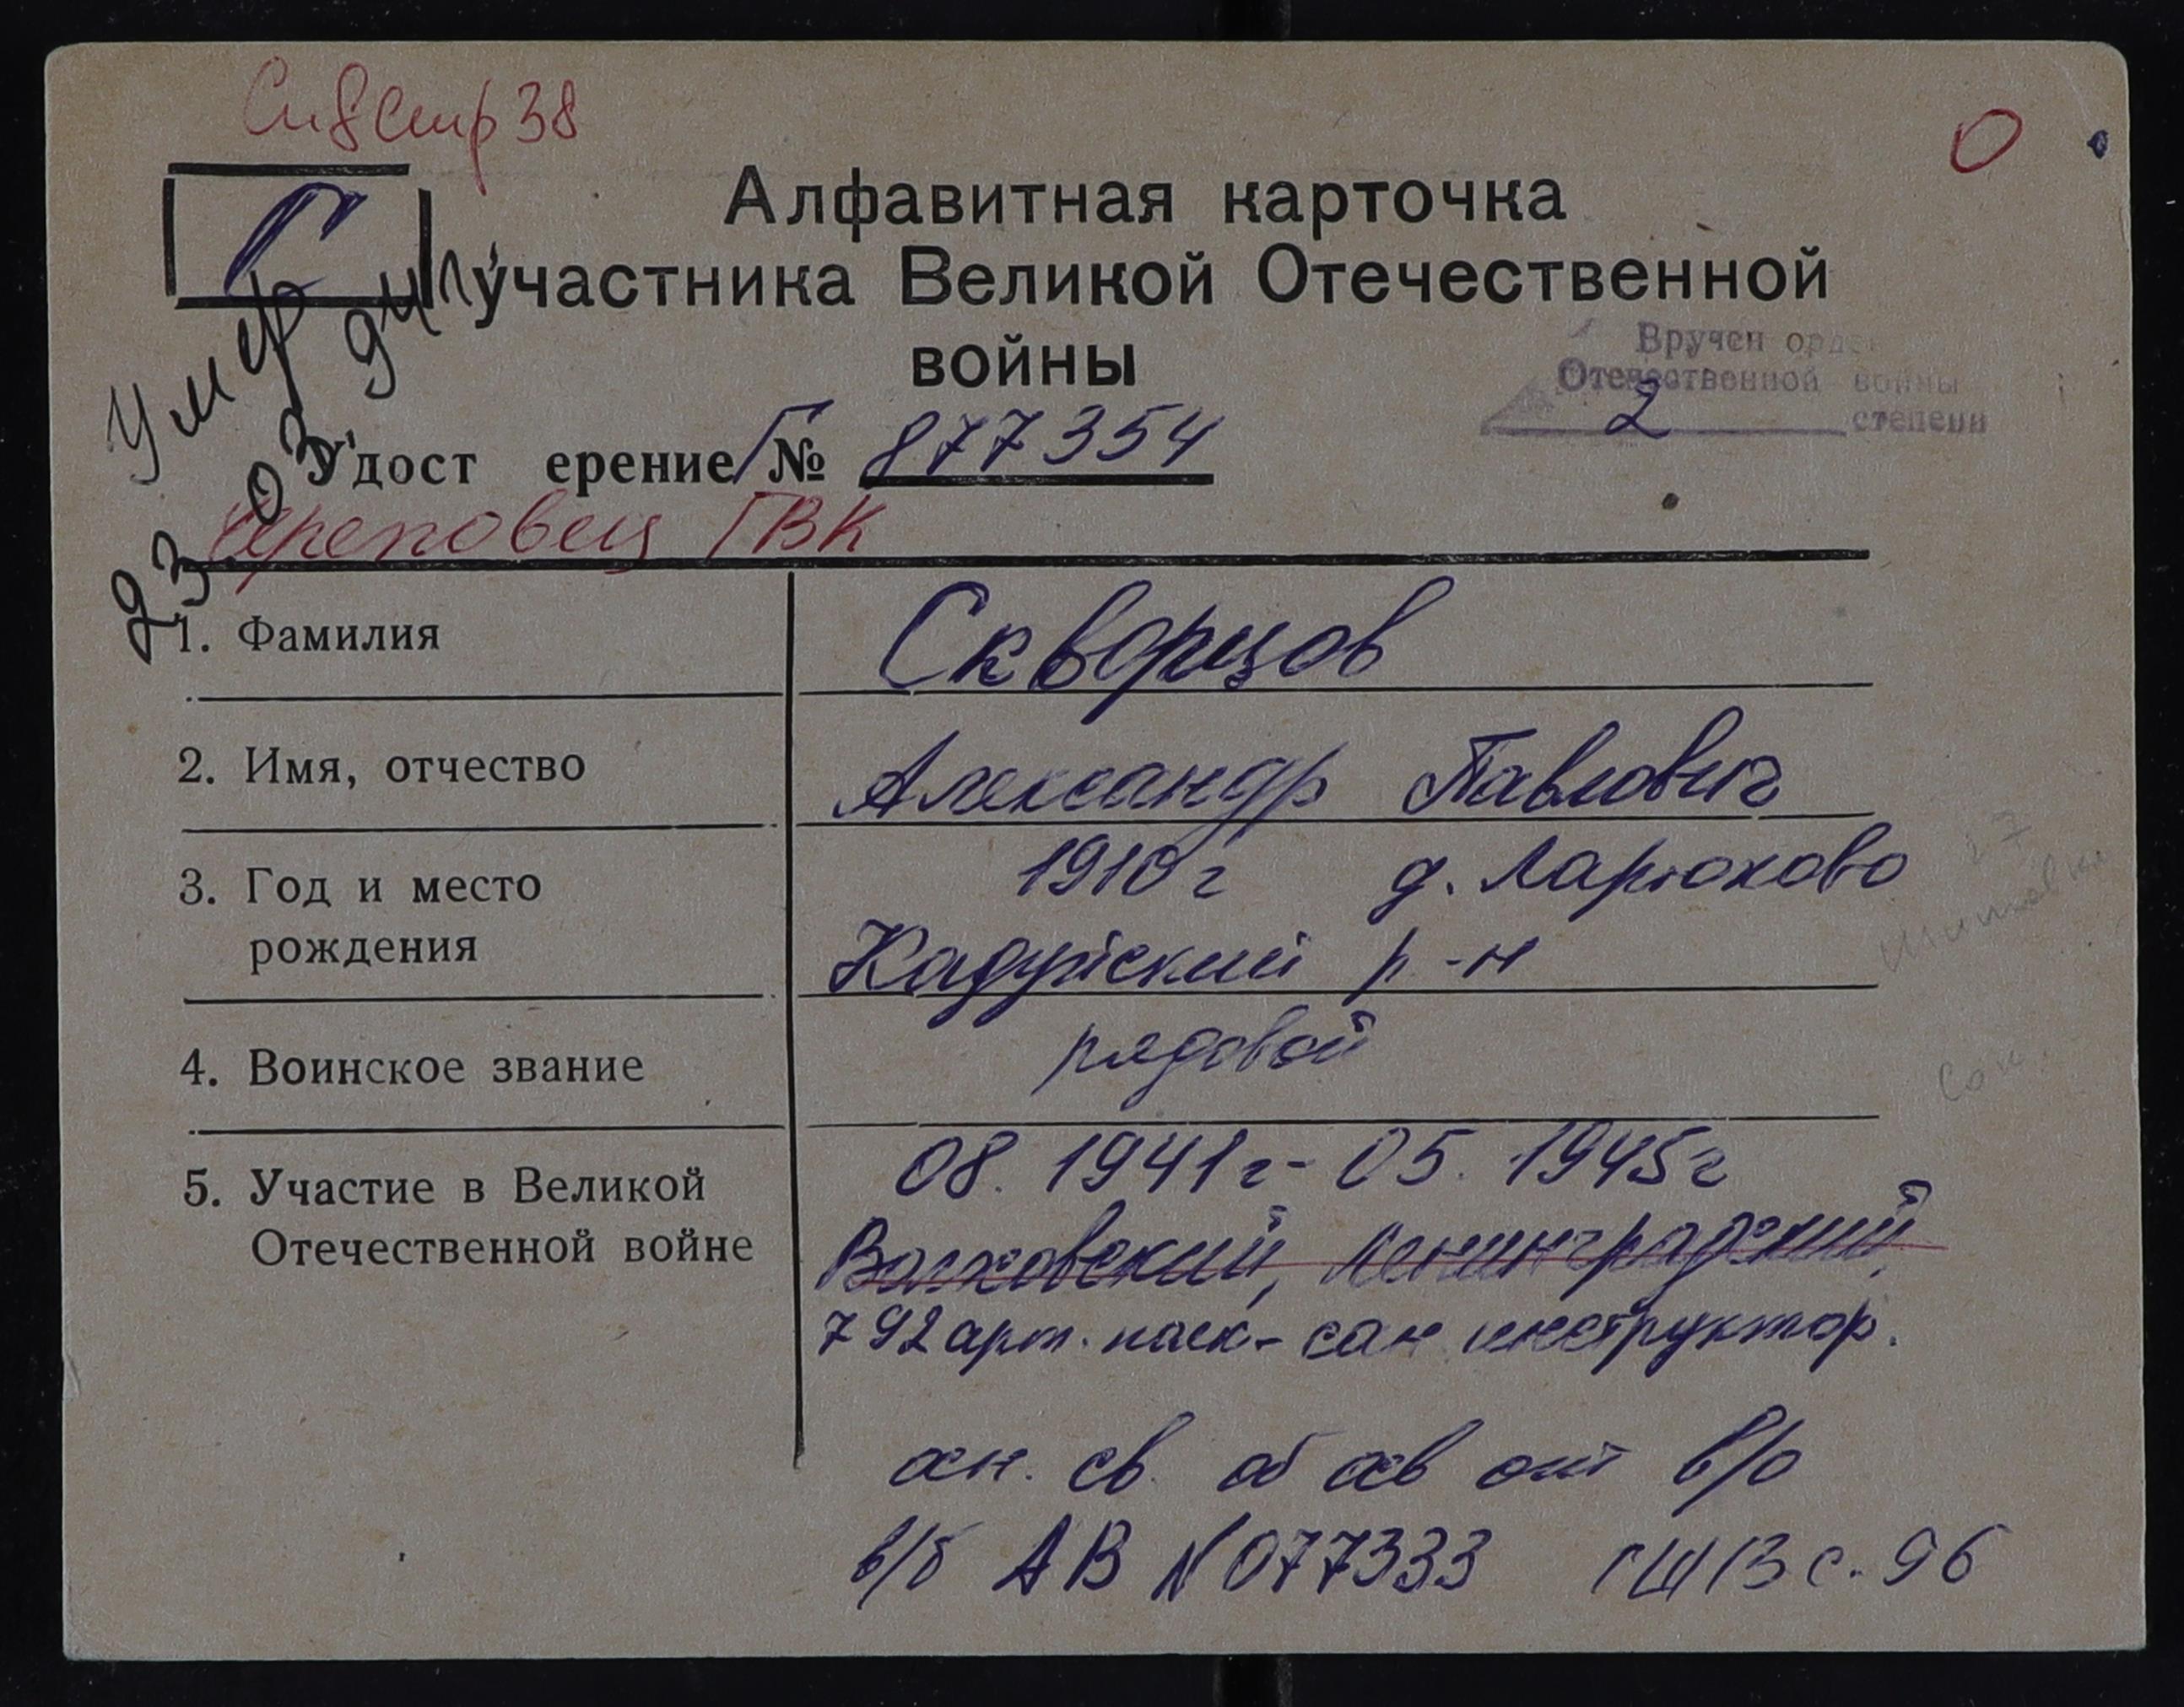 стр 38
О
С
Алфавитная карточка
участника Великой Отечественной
войны
Вручен орде
Отечественной войны
2 степени
Умер
23 03 94 г
Удост ерение Г № 877354
Череповец ГВК
1. Фамилия
Скворцов
2. Имя, отчество
Александр Павлович
3. Год и место
рождения
1910 г д. Ларюково
Кадуйский р-н
4. Воинское звание
рядовой
5. Участие в Великой
Отечественной войне
08. 1941 г - 05. 1945 г
Волховский, Ленинградский,
792 арт. полк - сан инструктор.
св. от в/о
в/б АВ N 077333 с. 96
Сан.